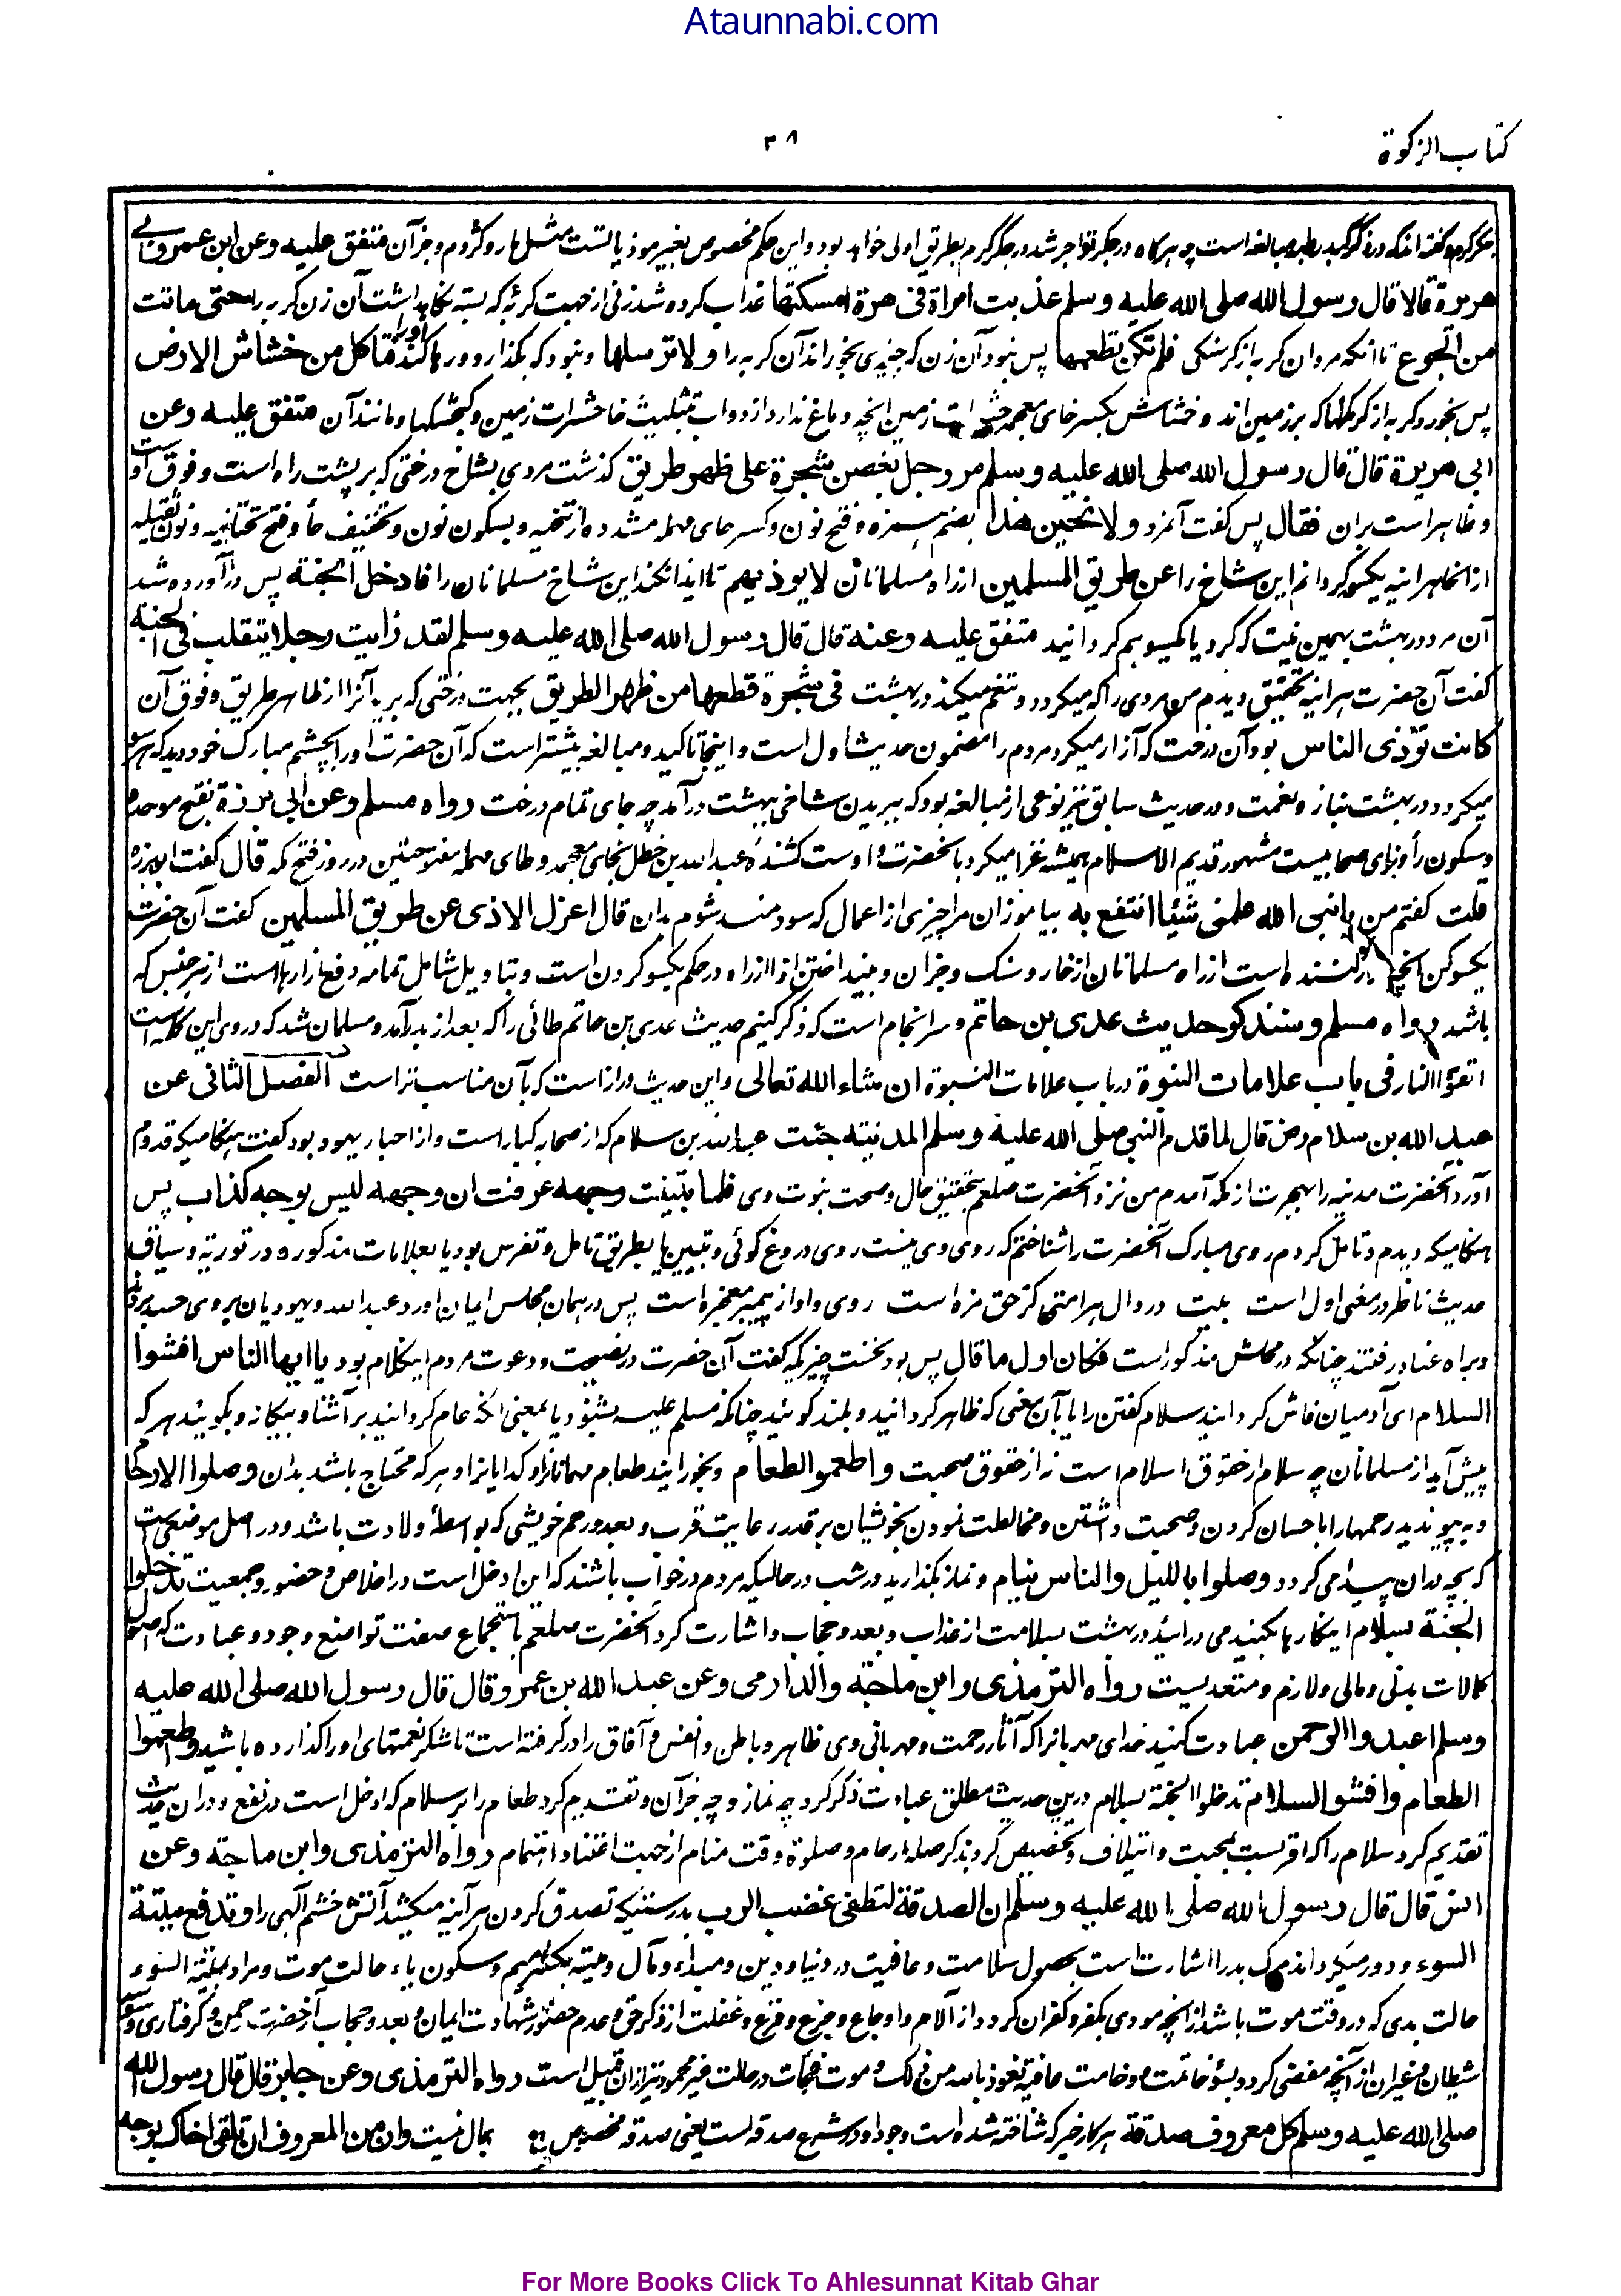 Ataunnabi.com
كتاب الزكوة
۳۸
هريرة قالا قال رسول الله صلى الله عليه وسلم عذبت امراة فى هرة امسكتها عذاب کرده شد زنی از جهت گربهٔ که بسته نگاهداشت آن زن گربه را حتى ماتت
من الجوع تا آنکه مرد آن گربه از گرسنگی فلم تكن تطعمها پس نبود آن زن که چیزی بخوراند آن گربه را ولا ترسلها و نبود که بگذارد و رها کند او را فتاكل من خشاش الارض
پس بخورد گربه از کرمها که بر زمین اند و خشاش بکسر خای معجمه حشرات زمین آنچه دماغ ندارد از دواب بتثلیث خا حشرات زمین و گنجشکها و مانند آن متفق عليه وعن
ابى هريرة قال قال رسول الله صلى الله عليه وسلم مر رجل بغصن شجرة على ظهر طريق گذشت مردی بشاخ درختی که بر پشت راه است و فوق اوست
و ظاهر است بر آن فقال پس گفت آنمرد ولانحين هذا بضم همزه و فتح نون و کسر حای مهمله مشدده از تنحیه و بسکون نون و تخفیف حا و فتح تحتانیه و نون ثقیله
از انحا هر آینه یکسو گردانم این شاخ را عن طريق المسلمين از راه مسلمانان لا يوذيهم تا ایذا نکند این شاخ مسلمانان را فادخل الجنة پس درآورده شد
آن مرد در بهشت بهمین نیت که کرد یا یکسو هم گردانید متفق عليه وعنه قال قال رسول الله صلى الله عليه وسلم لقد رايت رجلا يتقلب فى الجنة
گفت آن حضرت هر آینه بتحقیق دیدم من مردی را که میگردد و تنعم میکند در بهشت فى شجرة قطعها من ظهر الطريق بجهت درختی که برید آنرا از ظاهر طریق و فوق آن
كانت تؤذى الناس بود آن درخت که آزار میکرد مردم را مضمون حدیث اول است و اینجا تاکید و مبالغه بیشتر است که آن حضرت او را بچشم مبارک خود دید که هر سو
میگردد در بهشت بناز و نعمت و در حدیث سابق نیز نوعی از مبالغه بود که ببریدن شاخی ببهشت درآمد چه جای تمام درخت رواه مسلم وعن ابى برزة بفتح موحده
و سکون را و زای صحابیست مشهور قدیم الاسلام همیشه غزا میکرد با آنحضرت و اوست کشندهٔ عبد الله بن خطل بخای معجمه و طای مهمله مفتوحتین در روز فتح مکه قال گفت ابو برزه
قلت گفتم من يا نبى الله علمنى شيئا انتفع به بیاموزان مرا چیزی از اعمال که سودمند شوم بدان قال اعزل الاذى عن طريق المسلمين گفت آن حضرت
باشد رواه مسلم وسنذكر حديث عدى بن حاتم و سرانجام است که ذکر کنیم حدیث عدی بن حاتم طائی را که بعد از پدر آمد و مسلمان شد که در وی این کلمه است
اتقوا النار فى باب علامات النبوة در باب علامات النبوة ان شاء الله تعالى و این حدیث دراز است که بآن مناسب تر است الفصل الثانى عن
عبد الله بن سلام رض قال لما قدم النبى صلى الله عليه وسلم المدينة جئت عبد الله بن سلام که از صحابه کبار است و از احبار یهود بود گفت هنگامیکه قدوم
آورد آنحضرت مدینه را بهجرت از مکه آمدم من نزد آنحضرت صلعم بتحقیق حال و صحت نبوت وی فلما تبينت وجهه عرفت ان وجهه ليس بوجه كذاب پس
هنگامیکه دیدم و تامل کردم روی مبارک آنحضرت را شناختم که روی وی نیست روی دروغ گوئی و تبیین یا بطریق تامل و تفرس بود یا بعلامات مذکوره در توریة و سیاق
حدیث ناظر در معنی اول است بیت در دل هر امتی کز حق مزه است روی و آواز پیمبر معجزه است پس در همان مجلس ایمان آورد عبد الله و یهودیان بر وی حسد بردند
و براه عناد رفتند چنانکه در محلش مذکور است فكان اول ما قال پس بود نخست چیزیکه گفت آن حضرت در نصیحت و دعوت مردم اینکلام بود يا ايها الناس افشوا
السلام ای آدمیان فاش گردانید سلام گفتن را یا بآن معنی که ظاهر گردانید و بلند گوئید چنانکه مسلم علیه بشنود یا بمعنی آنکه عام گردانید بر آشنا و بیگانه و بگوئید هر که
پیش آید از مسلمانان چه سلام از حقوق اسلام است نه از حقوق صحبت واطعموا الطعام و بخورانید طعام مهمانان را و گدایان را و هر که محتاج باشد بدان وصلوا الارحام
و به پیوندید رحمها را با حسان کردن و صحبت داشتن و مخالطت نمودن بخویشان بر قدر رعایت قرب و بعد و رحم خویشی که بواسطهٔ ولادت باشد و در اصل موضعی است
که بچه در آن پیدا می گردد وصلوا بالليل والناس نيام و نماز بگذارید در شب در حالیکه مردم در خواب باشند که این ادخل است در اخلاص و حضور و جمعیت تدخلوا
الجنة بسلام اینکارها بکنید می درائید در بهشت بسلامت از عذاب و بعد و حجاب و اشارت کرد آنحضرت صلعم باستجماع صفت تواضع وجود و عبادت که اصول
کمالات بدنی و مالی و لازم و متعدیست رواه الترمذى وابن ماجة والدارمى وعن عبد الله بن عمرو قال قال رسول الله صلى الله عليه
وسلم اعبدوا الرحمن عبادت کنید خدای مهربانرا که آثار رحمت و مهربانی وی ظاهر و باطن و انفس و آفاق را در گرفته است تا شکر نعمتهای او را گذارده باشید واطعموا
الطعام وافشوا السلام تدخلوا الجنة بسلام درین حدیث مطلق عبادت ذکر کرد چه نماز و چه جز آن و تقدیم کرد طعام را بر سلام که ادخل است در نفع و در آن حدیث
تقدیم کرد سلام را که اقرب است بمحبت و ایتلاف و تخصیص کرد بذکر صله ارحام و صلوة وقت منام از جهت اعتنا و اهتمام رواه الترمذى وابن ماجة وعن
انس قال قال رسول الله صلى الله عليه وسلم ان الصدقة لتطفئ غضب الرب بدرستیکه تصدق کردن هر آینه میکشد آتش خشم الهی را وتدفع ميتة
السوء و دور میگرداند مرگ بد را اشارت است بحصول سلامت و عافیت در دنیا و دین و مبداء و مآل و میته بکسر میم و سکون یاء حالت موت و مراد بمیتة السوء
حالت بدی که در وقت موت باشد از آنچه مودی بکفر و کفران گردد از آلام و اوجاع و جزع و فزع و غفلت از ذکر حق و عدم حضور شهادت ایمان و بعد و حجاب
رواه الترمذى وعن جابر قال قال رسول الله
صلى الله عليه وسلم كل معروف صدقة هر کار خیر که شناخته شده است وجود او در شرع صدقه است یعنی صدقه مخصوص بمال نیست وان من المعروف ان تلقى اخاك بوجه
For More Books Click To Ahlesunnat Kitab Ghar